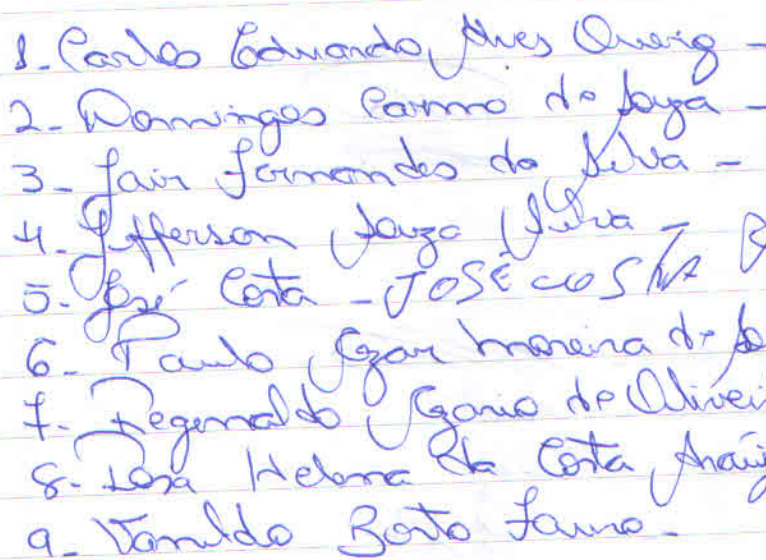 1- Carlos Eduardo Alves Queiroz -
2- Domingos Carmo de Souza -
3- Jair Fernandes da Silva -
4- Jefferson Souza Silva -
5- José Costa - JOSÉ COSTA
6- Paulo Cezar Moreira de
7- Reginaldo de Olivei
8- Rosa Helena da Costa Araúj
9- Vanildo Bento